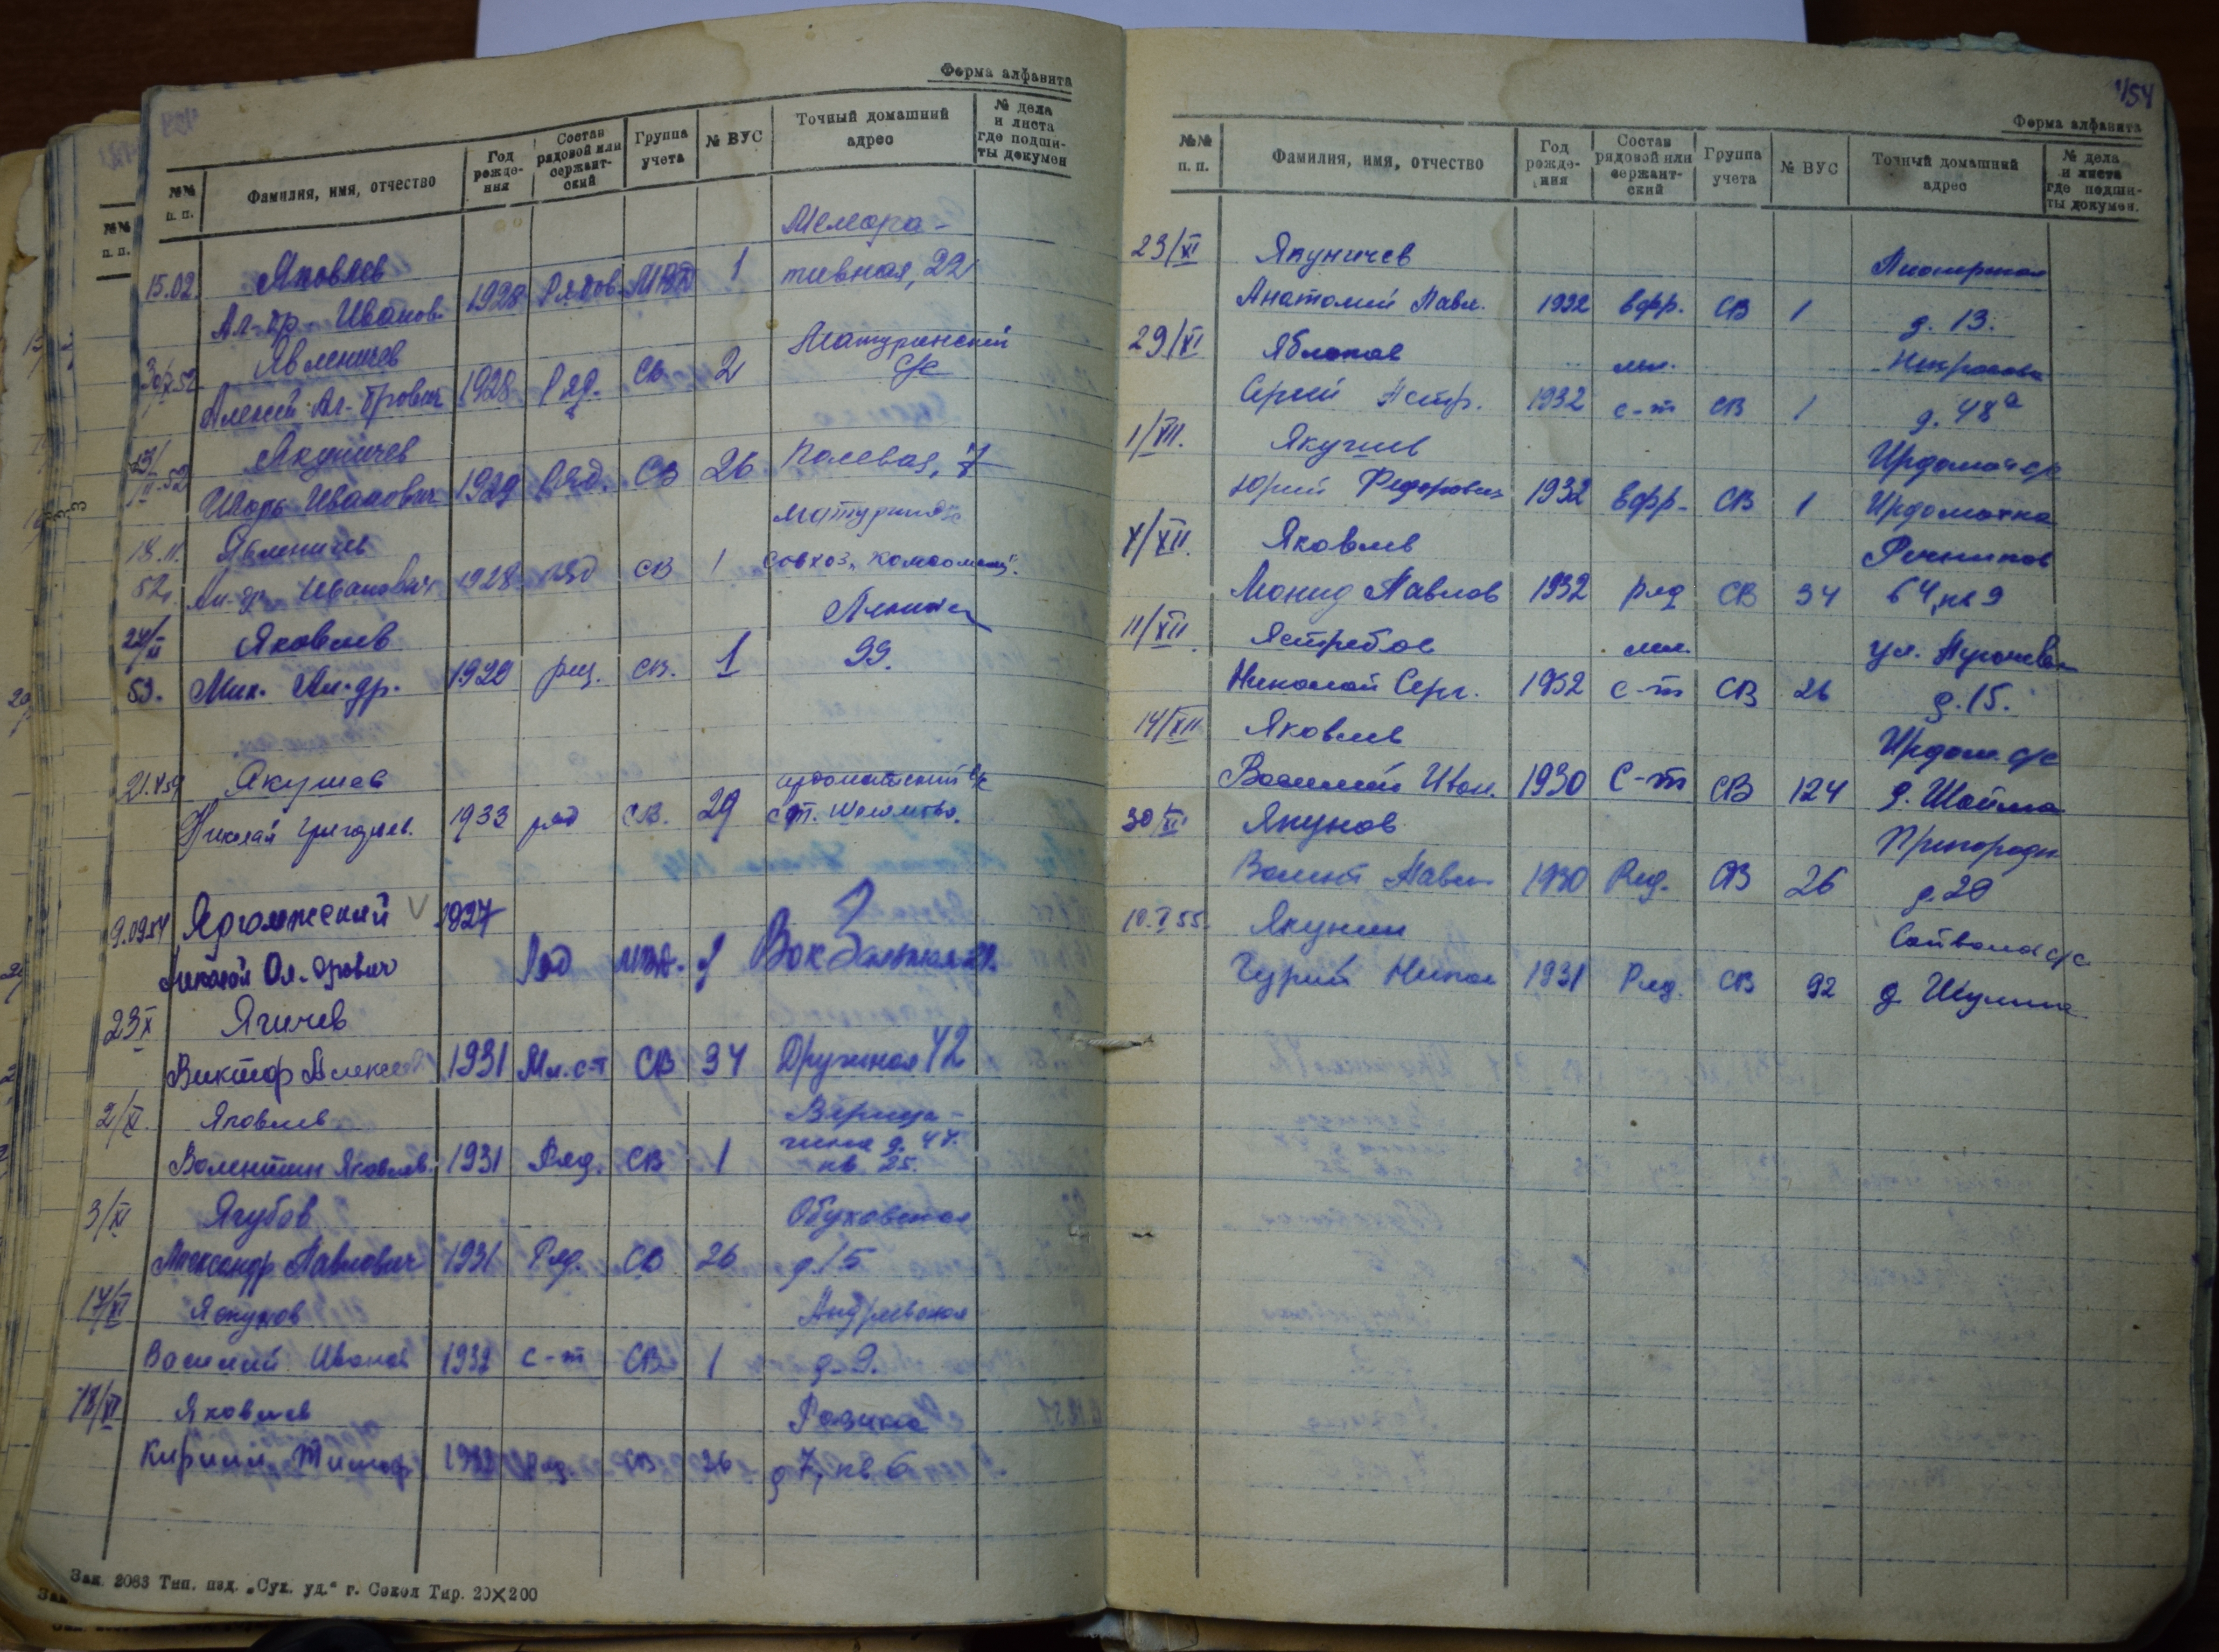 Форма алфавита
№№ п. п. Фамилия, имя, отчество Год рожде-ния Состав рядовой или сержант-ский Группа учета № ВУС Точный домашний адрес № дела и листа где подши-ты докумен
Мелиора-
15.02. Яковлев 1 тивная, 22
Ал-др Иванов. 1928 Рядов.
Явленичев Матуринский
Алексей Ал-дрович 1928 Ряд. СВ 2 с/с
Якуничев
52 Игорь Иванович 1929 Ряд. СВ 26 Полевая, 7
18.11. Явленичев
52г. Ал-др Иванович 1928 ряд СВ 1 совхоз „Комсомолец".
Яковлев Ленина
53. Мих. Ал-др. 1929 ряд. СВ. 1 99.
Якушев
Николай Григорьев. 1933 ряд СВ. 29 ст. Шеломово.
9.09.54 Ярголжский V 1927
Николай Ал-дрович Ряд Вокзальная
23 X Ягичев
Виктор Алексеев 1931 Мл. с-т СВ 34 Дружная 42
2/XI. Яковлев Вереща-
гина д. 47.
Валентин Яковлев. 1931 Ряд. СВ 1 кв. 25.
3/XI Ягубов Обуховская
Александр Павлович 1931 Ряд. СВ 26 д. 15
17/XI Яскунов Андреевская
Василий Иванов 1932 с-т СВ 1 д. 9.
18/XI Яковлев Разина
Кирилл Тимоф 1932 Ряд. СВ 26 д 7, кв 6
Зак. 2083 Тип. изд. „Сух. уд." г. Сокол Тир. 20×200
454
Форма алфавита
№№ п. п. Фамилия, имя, отчество Год рожде-ния Состав рядовой или сержант-ский Группа учета № ВУС Точный домашний адрес № дела и листа где подши-ты докумен.
23/XI Якуничев Пионерская
Анатолий Павл. 1932 ефр. СВ 1 д. 13.
29/XI Яблоков мл. Некрасова
Сергей Петр. 1932 с-т СВ 1 д. 48а
1/XII. Якушев Ирдомат с/с
Юрий Федорович 1932 ефр. СВ 1 Ирдоматка
Яковлев Речников
Леонид Павлов 1932 ряд СВ 34 64, кв 9
11/XII. Ястребов мл. ул. Пугачева
Николай Серг. 1932 с-т СВ 26 д. 15.
14/XII Яковлев Ирдом. с/с
Василий Иван. 1930 С-т СВ 124 д. Шайма
30/XII Якунов Пригородн
Валент Павл 1930 Ряд. СВ 26 д. 20
10.I 55. Якунин
Гурий Никол 1931 Ряд. СВ 92 д Шулма